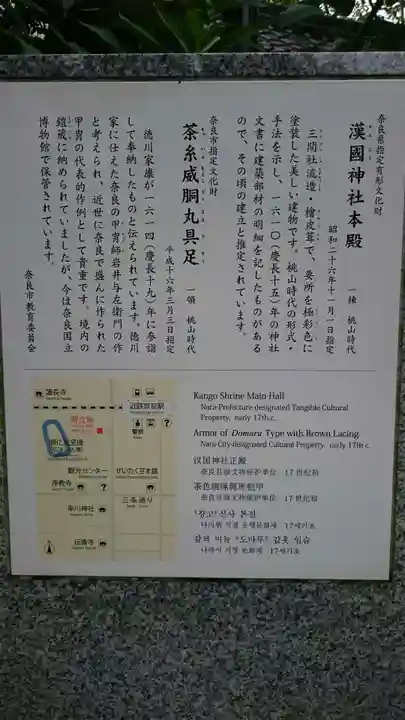 奈良県指定有形文化財
漢國神社本殿
かんごう
一棟 桃山時代
昭和二十六年十一月一日指定
三間社流造・檜皮葺で、要所を極彩色に
塗装した美しい建物です。桃山時代の形式・
手法を示し、一六一〇(慶長十五)年の神社
文書に建築部材の明細を記したものがある
ので、その頃の建立と推定されています。
奈良市指定文化財
茶糸威胴丸具足
一領 桃山時代
平成十六年三月三日指定
徳川家康が一六一四(慶長十九)年に参詣
して奉納したものと伝えられています。徳川
家に仕えた奈良の甲冑師岩井与左衛門の作
と考えられ、近世に奈良で盛んに作られた
甲冑の代表的作例として貴重です。境内の
鎧蔵に納められていましたが、今は奈良国立
博物館で保管されています。
奈良市教育委員会
Kango Shrine Main Hall
Nara-Prefecture-designated Tangible Cultural
Property, early 17th c.
Armor of Domaru Type with Brown Lacing
Nara-City-designated Cultural Property, early 17th c.
汉国神社正殿
奈良县级文物保护单位 17世纪初
茶色
奈良市级文物保护单位 17世纪初
17세기초
17세기초
蓮長寺
近鉄奈良駅
現在地
警察
観光センター
ぜいたく豆本舗
浄教寺
三条通り
率川神社
伝香寺